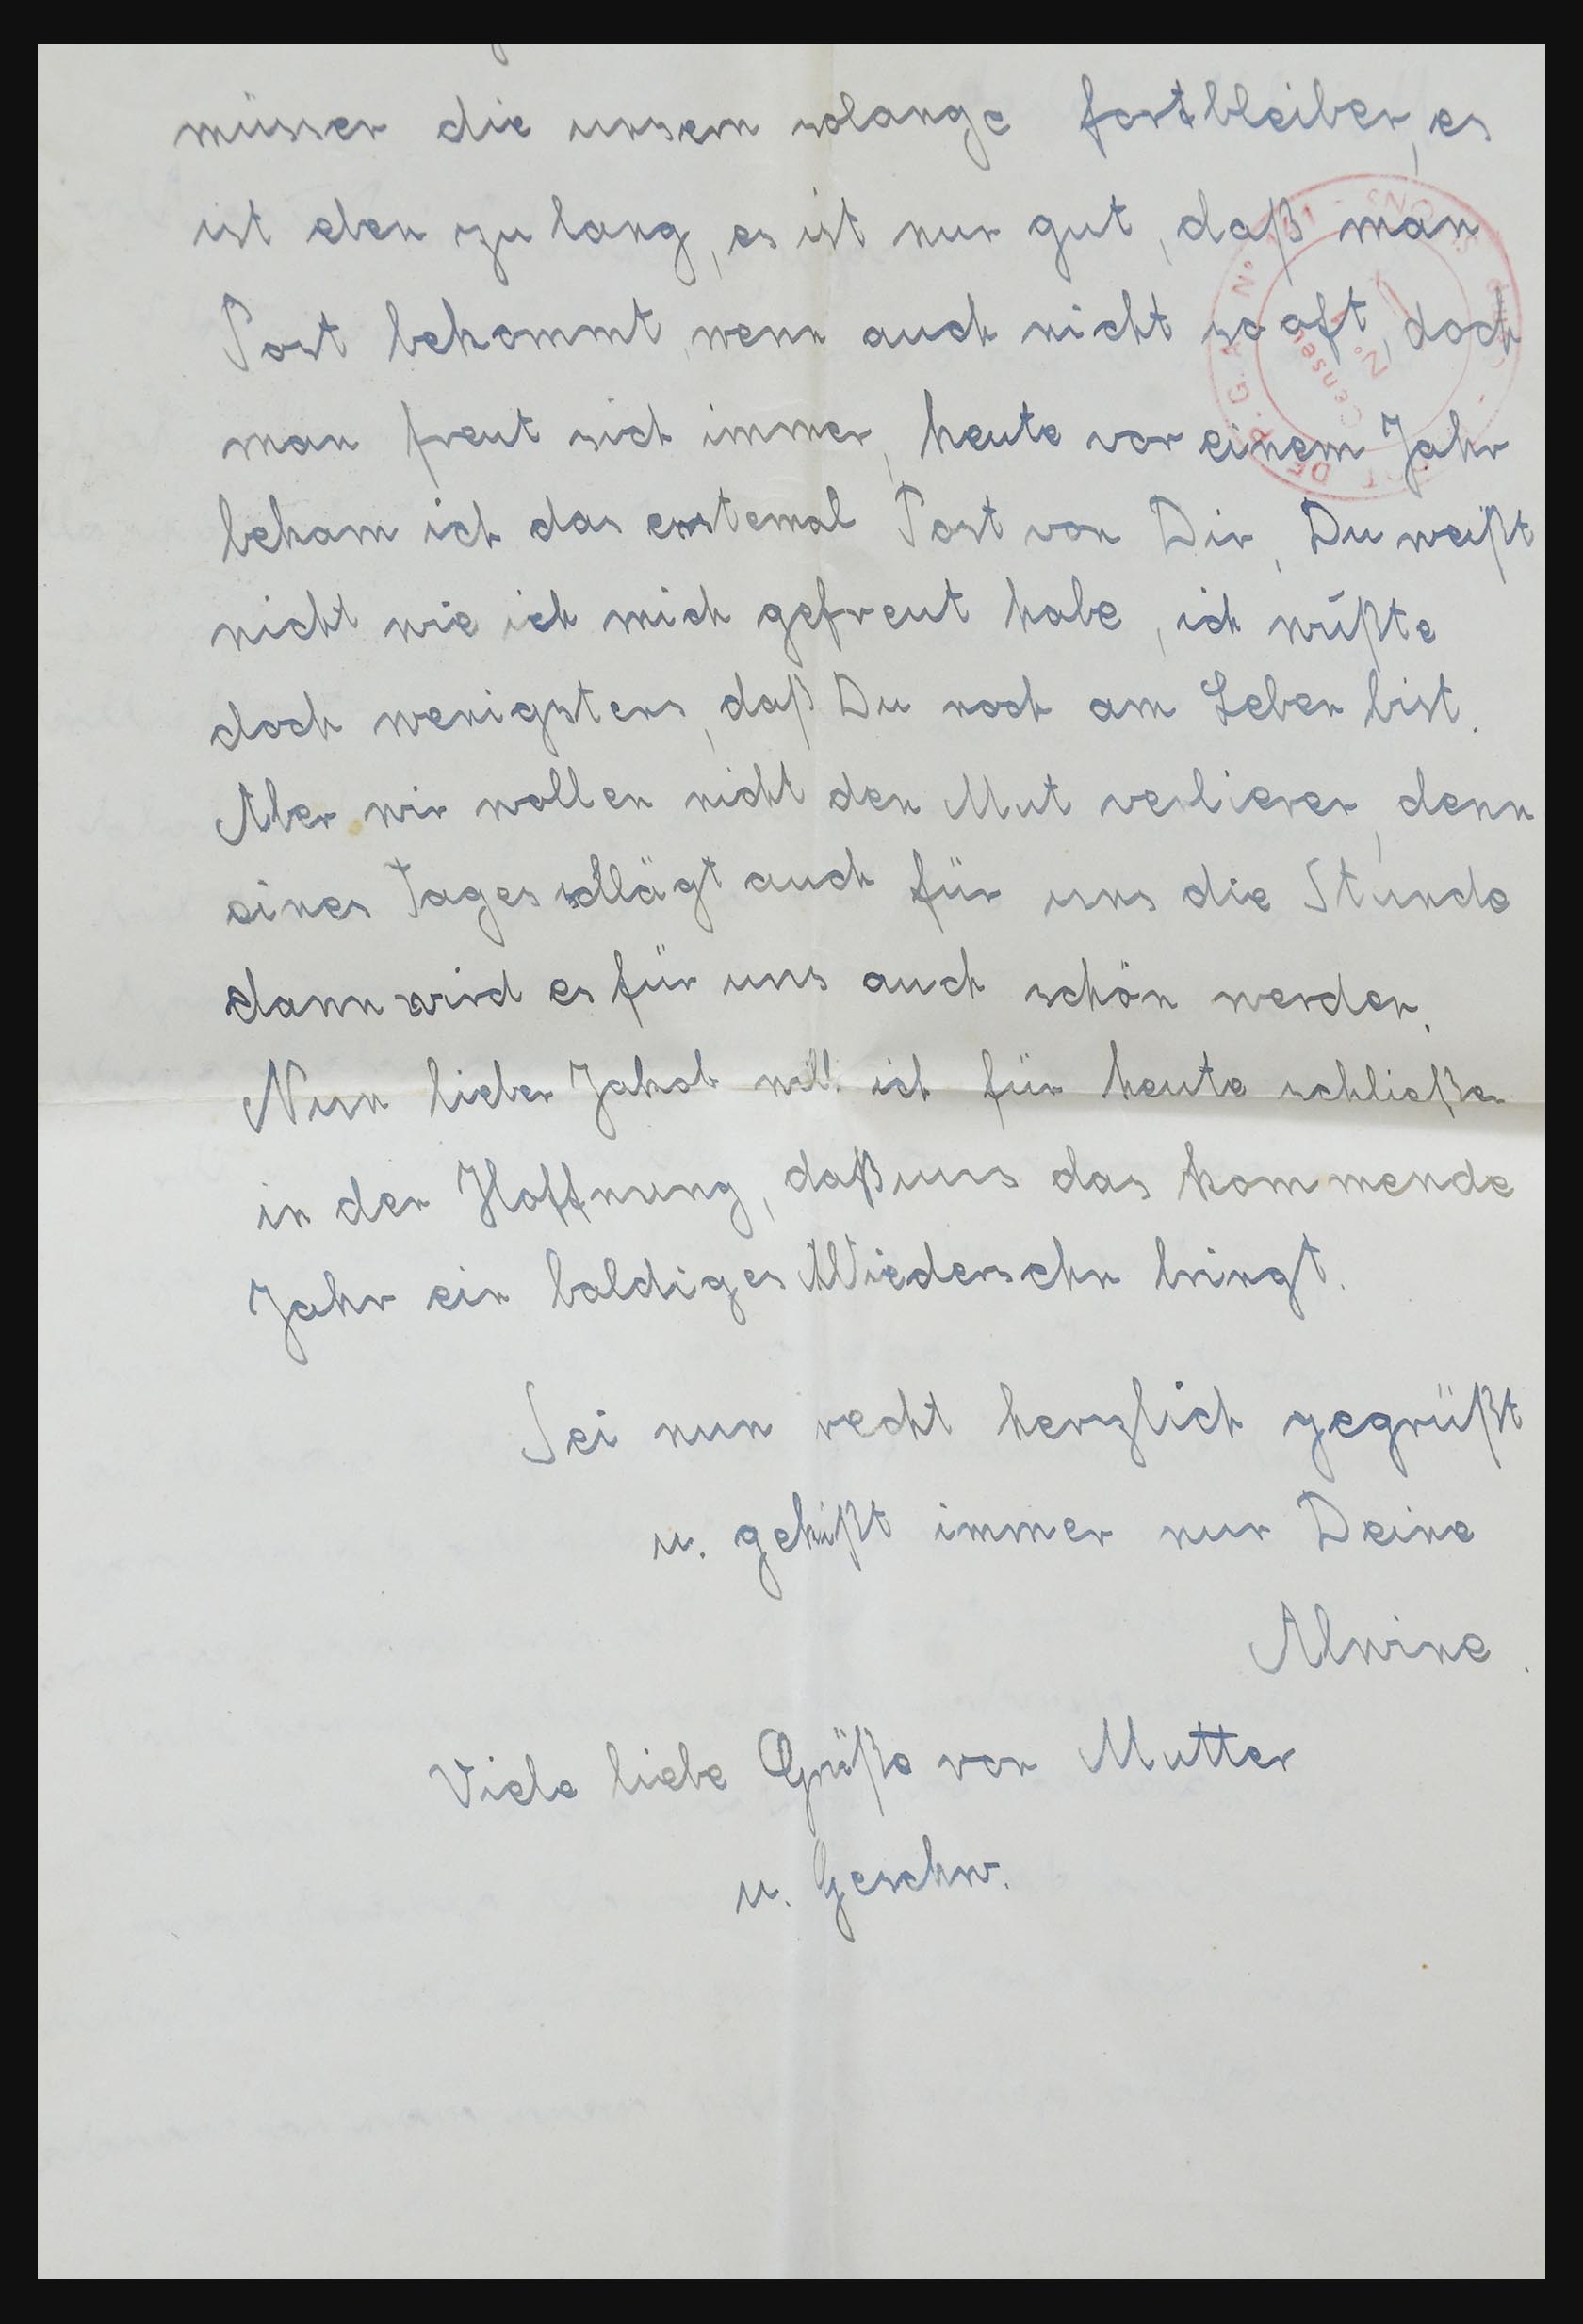 müssen die unsern solange fortbleiben, es
ist eben zu lang, es ist nur gut, daß man
Post bekommt, wenn auch nicht so oft, doch
man freut sich immer, heute vor einem Jahr
bekam ich das erstemal Post von Dir, Du weißt
nicht wie ich mich gefreut habe, ich wußte
doch wenigstens, daß Du noch am Leben bist.
Aber wir wollen nicht den Mut verlieren, denn
eines Tages schlägt auch für uns die Stunde
dann wird es für uns auch schön werden.
Nun lieber Jakob will ich für heute schließen
in der Hoffnung, daß uns das kommende
Jahr ein baldiges Wiedersehn bringt.
Sei nun recht herzlich gegrüßt
u. geküßt immer nur Deine
Alwine.
Viele liebe Grüße von Mutter
u. Geschw.
Censeur
N°